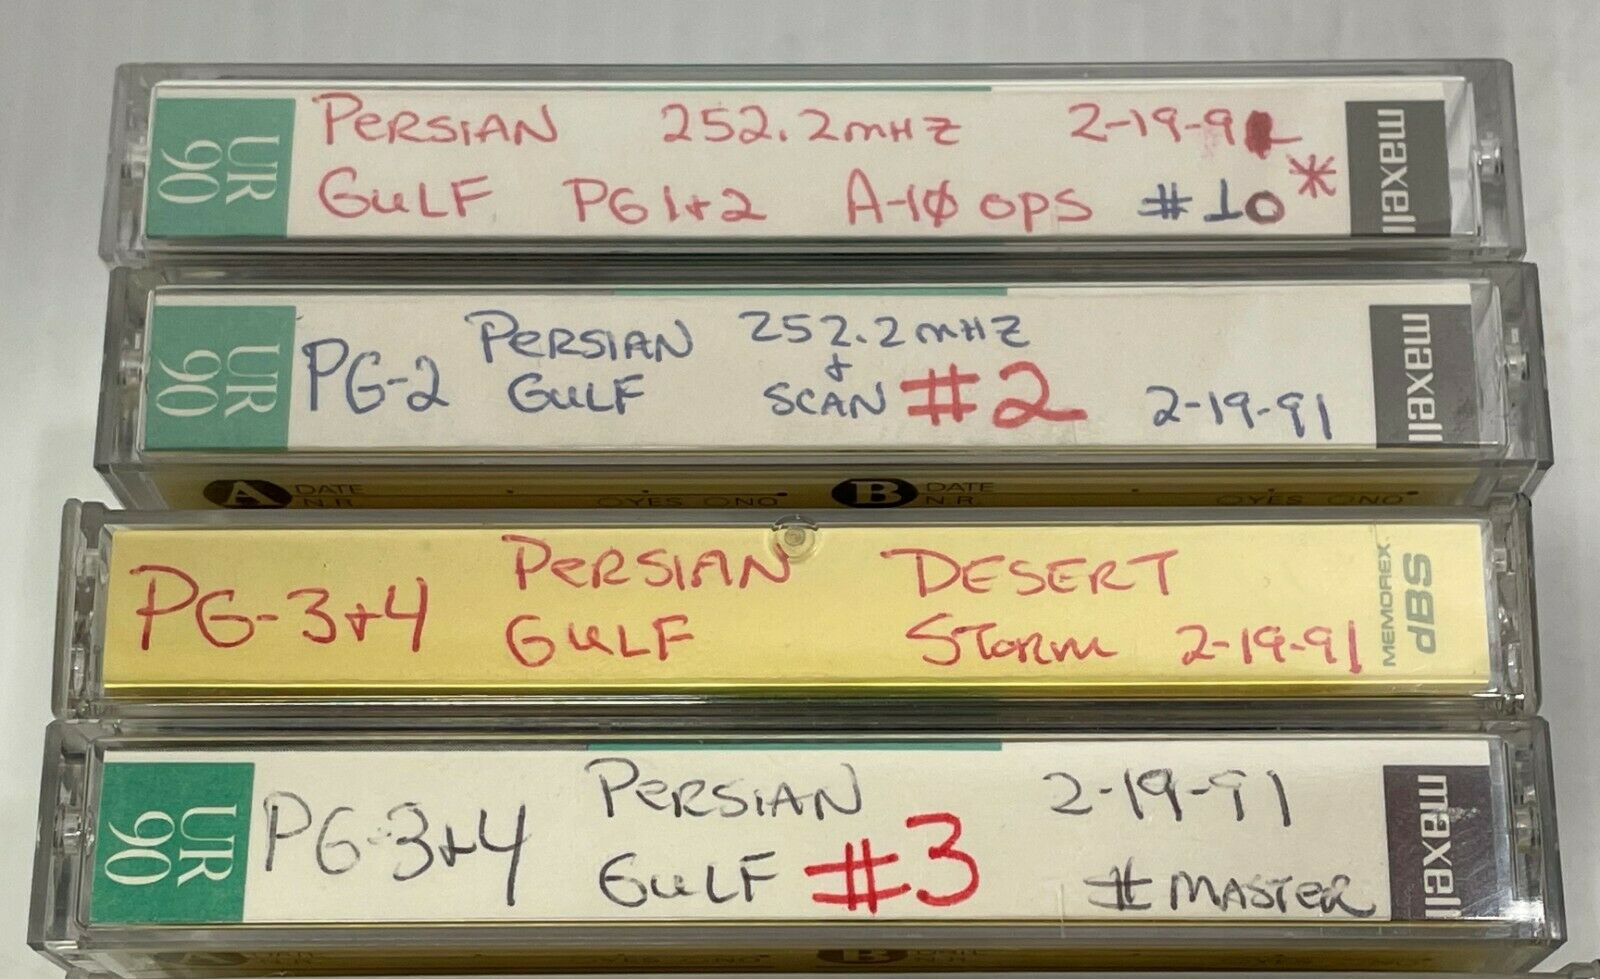 UR 90
PERSIAN 252.2 MHZ 2-19-91
GULF PG 1+2 A-1Ø OPS #10*
maxell
UR 90
PG-2 PERSIAN GULF 252.2 MHZ + SCAN #2 2-19-91
maxell
A DATE N.R. YES NO B DATE N.R. YES NO
PG-3+4 PERSIAN GULF DESERT STORM 2-19-91
MEMOREX dBS
UR 90
PG-3+4 PERSIAN GULF #3 2-19-91 # MASTER
maxell
A B